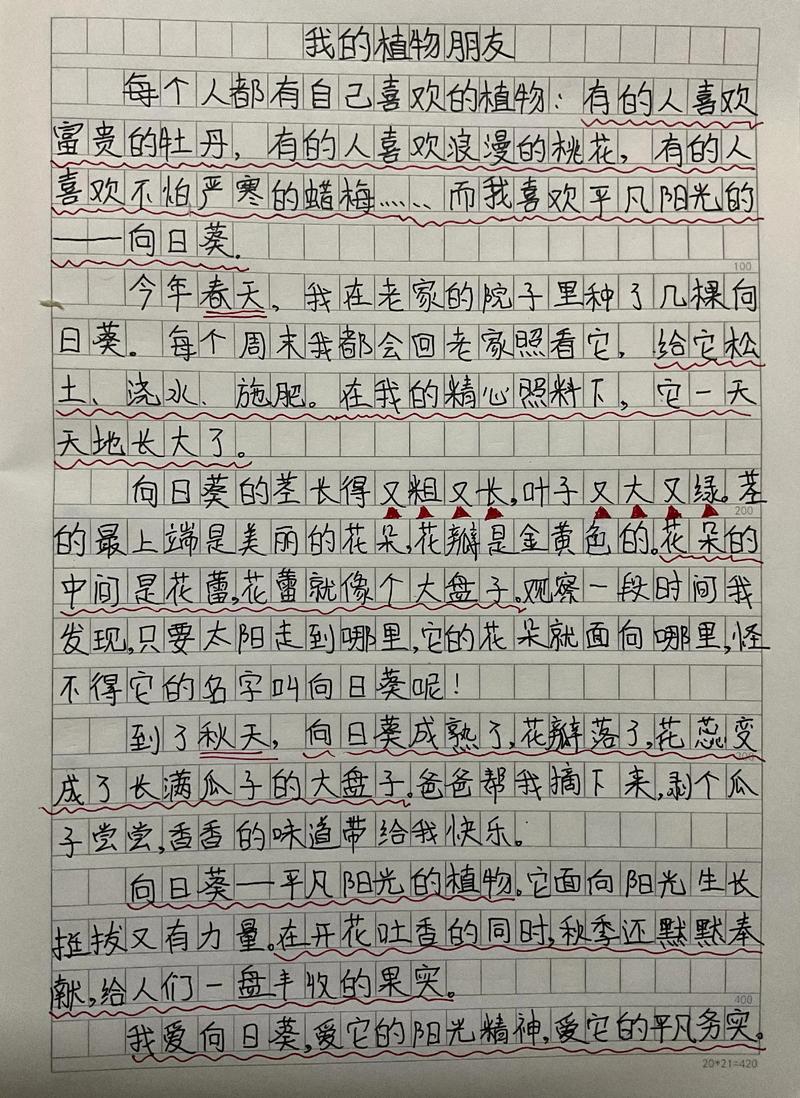 我的植物朋友
每个人都有自己喜欢的植物：有的人喜欢
富贵的牡丹，有的人喜欢浪漫的桃花，有的人
喜欢不怕严寒的蜡梅……而我喜欢平凡阳光的
——向日葵。
100
今年春天，我在老家的院子里种了几棵向
日葵。每个周末我都会回老家照看它，给它松
土、浇水、施肥。在我的精心照料下，它一天
天地长大了。
向日葵的茎长得又粗又长，叶子又大又绿。茎
200
的最上端是美丽的花朵，花瓣是金黄色的。花朵的
中间是花蕾，花蕾就像个大盘子。观察一段时间我
发现，只要太阳走到哪里，它的花朵就面向哪里，怪
不得它的名字叫向日葵呢！
到了秋天，向日葵成熟了，花瓣落了，花蕊变
300
成了长满瓜子的大盘子。爸爸帮我摘下来，剥个瓜
子尝尝，香香的味道带给我快乐。
向日葵——平凡阳光的植物。它面向阳光生长
挺拔又有力量。在开花吐香的同时，秋季还默默奉
献，给人们一盘丰收的果实。
400
我爱向日葵，爱它的阳光精神，爱它的平凡务实。
20*21=420